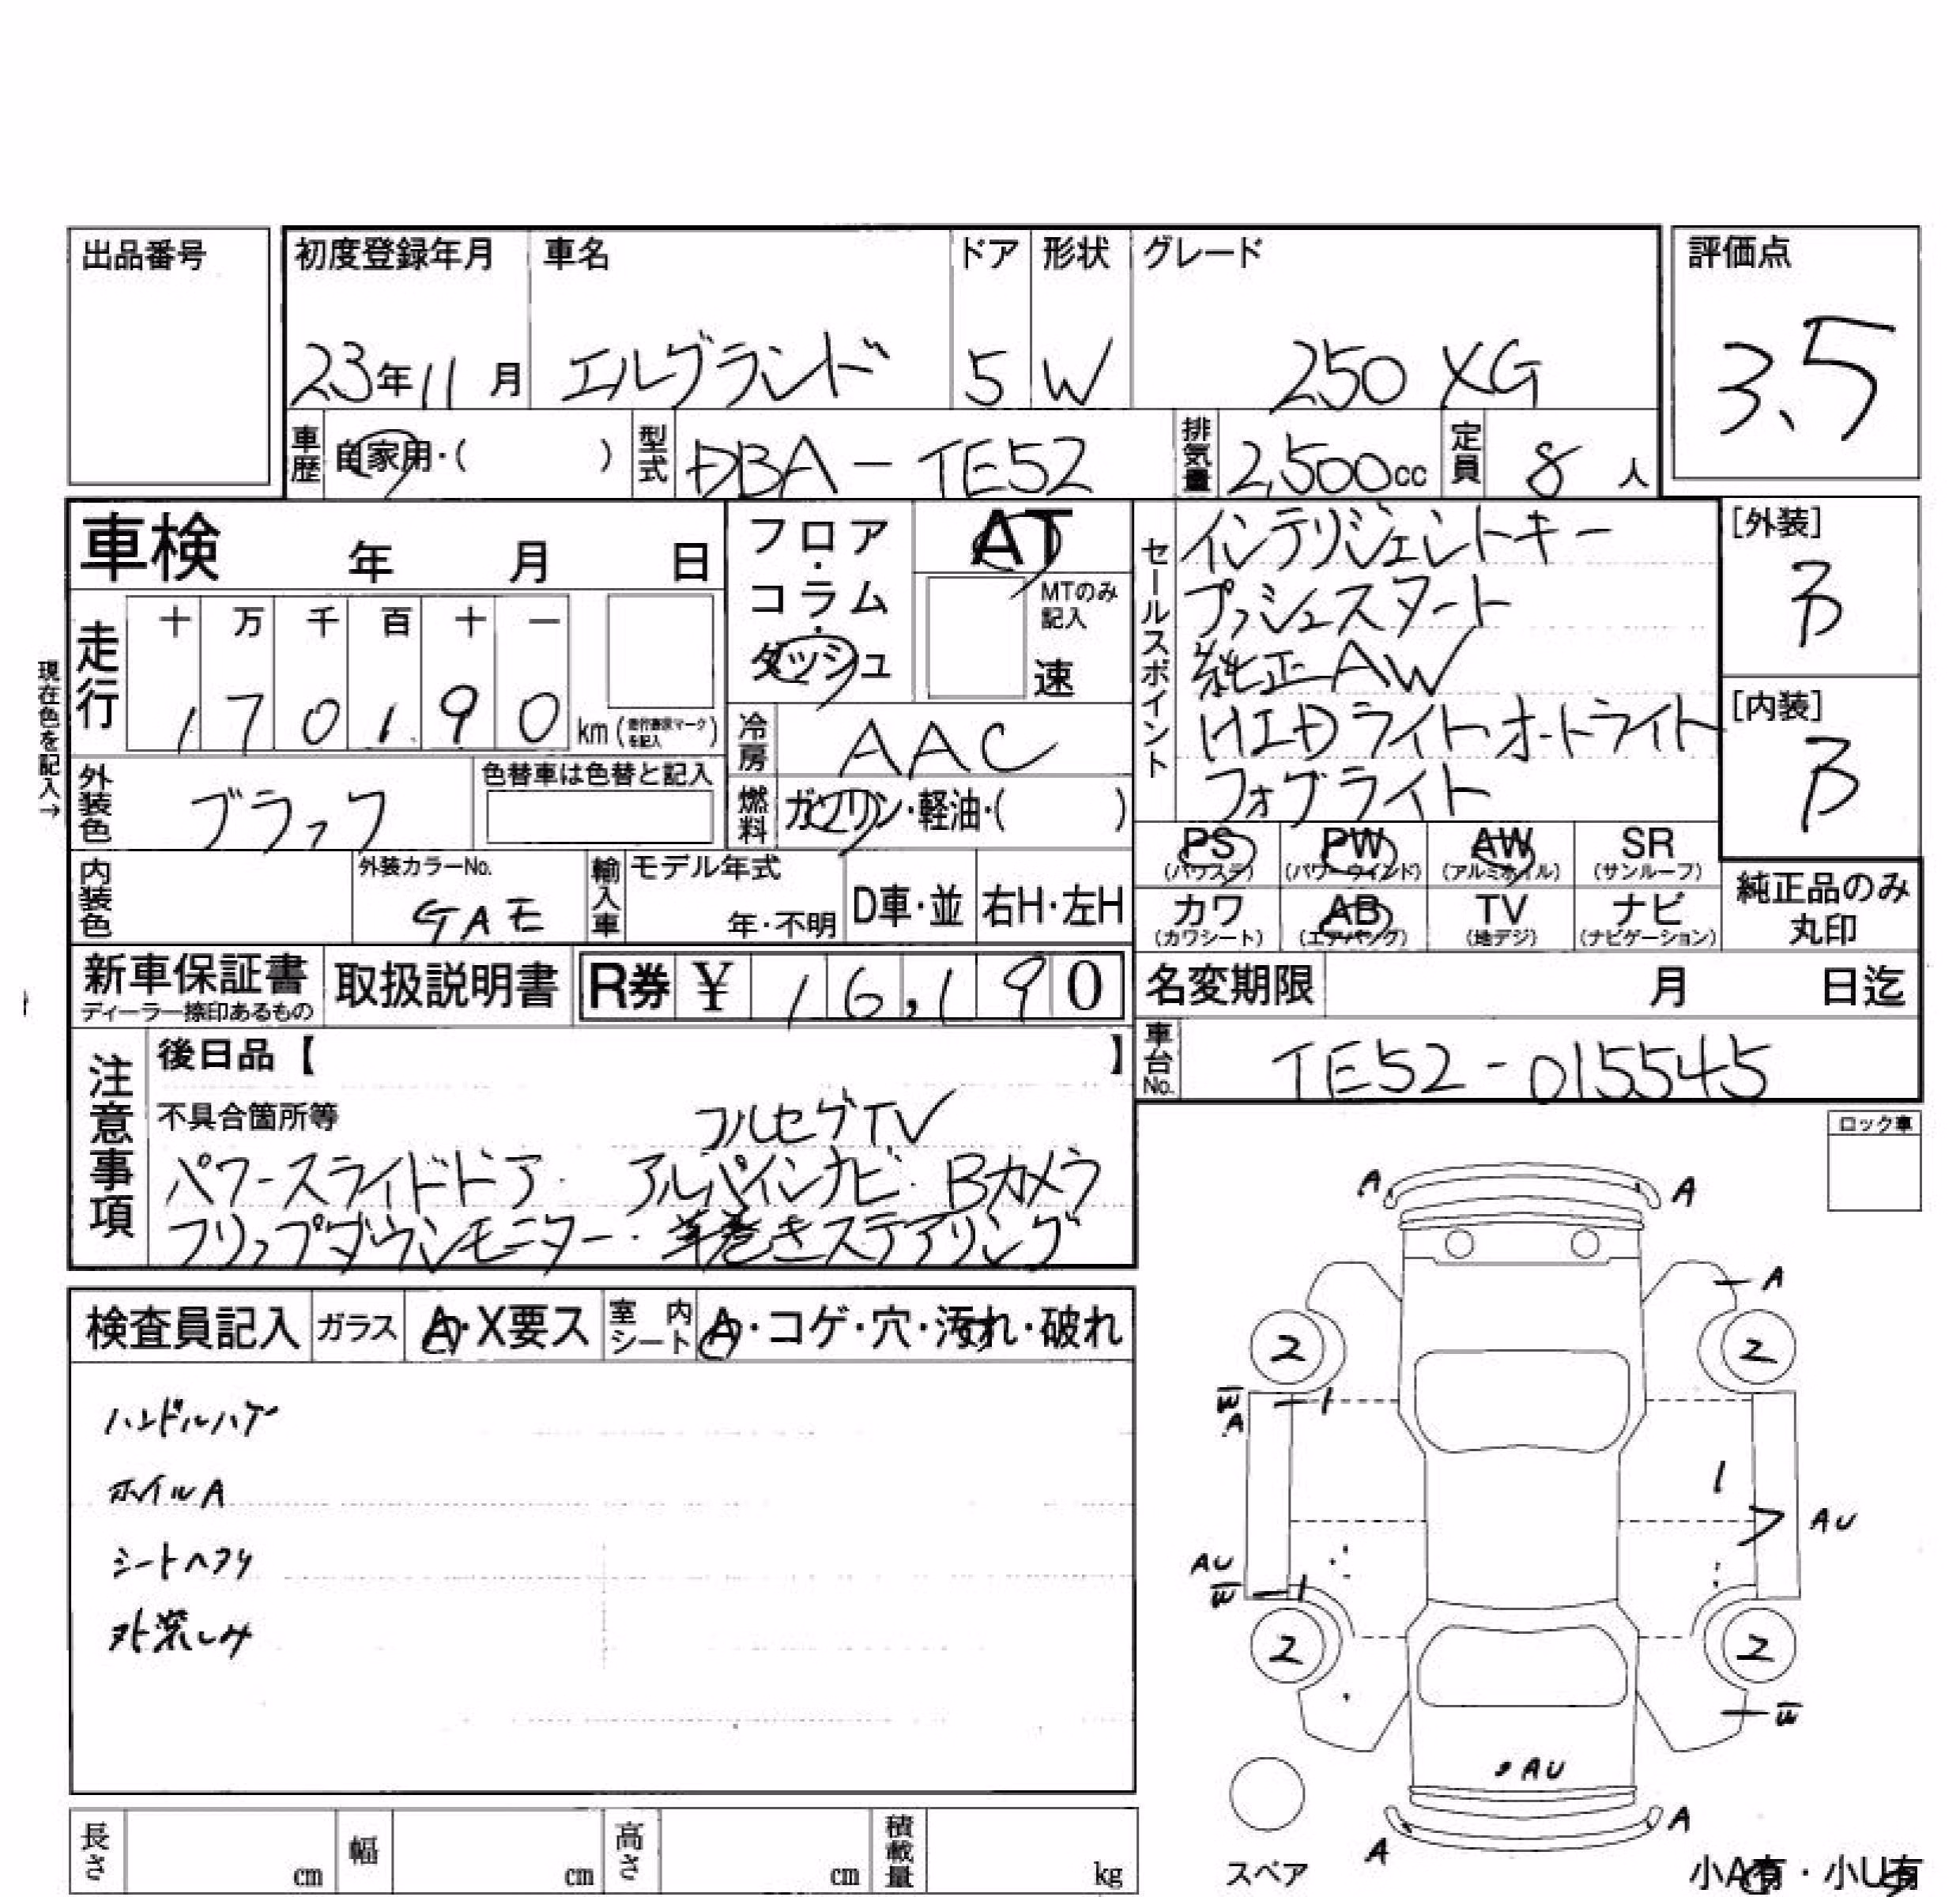 出品番号
初度登録年月 車名 ドア 形状 グレード 評価点
23年11月 エルグランド 5 W 250 XG 3.5
車歴 自家用・( ) 型式 DBA-TE52 排気量 2,500cc 定員 8人
車検 年 月 日
フロア・コラム・ダッシュ
AT
MTのみ記入
速
セールスポイント
インテリジェントキー
プッシュスタート
純正AW
HIDライト オートライト
フォグライト
[外装]
B
[内装]
B
現在色を記入→
走行 十 万 千 百 十 一
170190 km(
を記入)
冷房 AAC
外装色 ブラック 色替車は色替と記入
燃料 ガソリン・軽油・( )
内装色 外装カラーNo. GAE
輸入車 モデル年式 年・不明 D車・並 右H・左H
PS PW AW SR
(パワステ) (パワーウインド) (アルミホイル) (サンルーフ)
カワ AB TV ナビ
(カワシート) (エアバック) (地デジ) (ナビゲーション)
純正品のみ
丸印
新車保証書 取扱説明書 R券 ¥ 16,190
ディーラー捺印あるもの
名変期限 月 日迄
車台No. TE52-015545
注意事項
後日品【 】
不具合箇所等 フルセグTV
パワースライドドア・アルパインナビ・Bカメラ
フリップダウンモニター・革巻きステアリング
ロック車
検査員記入 ガラス A・X要ス 室内シート A・コゲ・穴・汚れ・破れ
ハンドルハゲ
ホイルA
シートヘタリ
外装しみ
A A
A
2 2
W
A
AU
AU
W
2 2
W
AU
A
A
スペア
小A有・小U有
長さ cm 幅 cm 高さ cm 積載量 kg